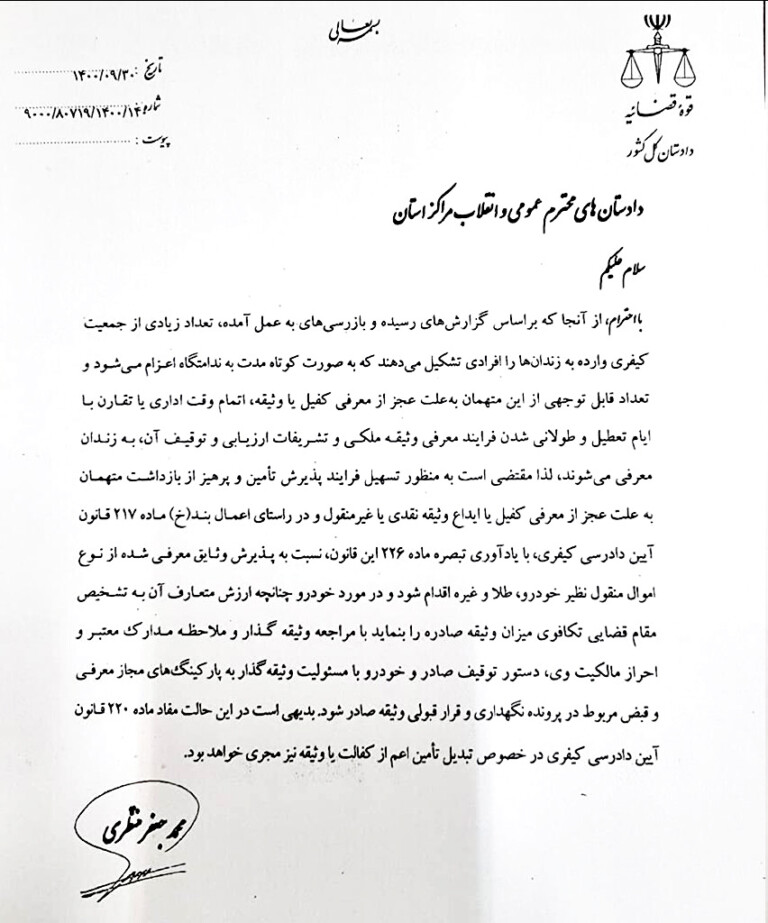 بسمه تعالی
قوه قضائیه
دادستان کل کشور
تاریخ : ۱۴۰۰/۰۹/۳۰
شماره: ۹۰۰۰/۸۰۷۱۹/۱۴۰۰/۱۴۰
پیوست :
دادستان های محترم عمومی و انقلاب مراکز استان
سلام علیکم
با احترام، از آنجا که براساس گزارش‌های رسیده و بازرسی‌های به عمل آمده، تعداد زیادی از جمعیت
کیفری وارده به زندان‌ها را افرادی تشکیل می‌دهند که به صورت کوتاه مدت به ندامتگاه اعزام می‌شود و
تعداد قابل توجهی از این متهمان به‌علت عجز از معرفی کفیل یا وثیقه، اتمام وقت اداری یا تقارن با
ایام تعطیل و طولانی شدن فرایند معرفی وثیقه ملکی و تشریفات ارزیابی و توقیف آن، به زندان
معرفی می‌شوند، لذا مقتضی است به منظور تسهیل فرایند پذیرش تأمین و پرهیز از بازداشت متهمان
به علت عجز از معرفی کفیل یا ایداع وثیقه نقدی یا غیرمنقول و در راستای اعمال بند(خ) ماده ۲۱۷ قانون
آیین دادرسی کیفری، با یادآوری تبصره ماده ۲۲۶ این قانون، نسبت به پذیرش وثایق معرفی شده از نوع
اموال منقول نظیر خودرو، طلا و غیره اقدام شود و در مورد خودرو چنانچه ارزش متعارف آن به تشخیص
مقام قضایی تکافوی میزان وثیقه صادره را بنماید با مراجعه وثیقه گذار و ملاحظه مدارک معتبر و
احراز مالکیت وی، دستور توقیف صادر و خودرو با مسئولیت وثیقه‌گذار به پارکینگ‌های مجاز معرفی
و قبض مربوط در پرونده نگهداری و قرار قبولی وثیقه صادر شود. بدیهی است در این حالت مفاد ماده ۲۲۰ قانون
آیین دادرسی کیفری در خصوص تبدیل تأمین اعم از کفالت یا وثیقه نیز مجری خواهد بود.
محمد جعفر منتظری